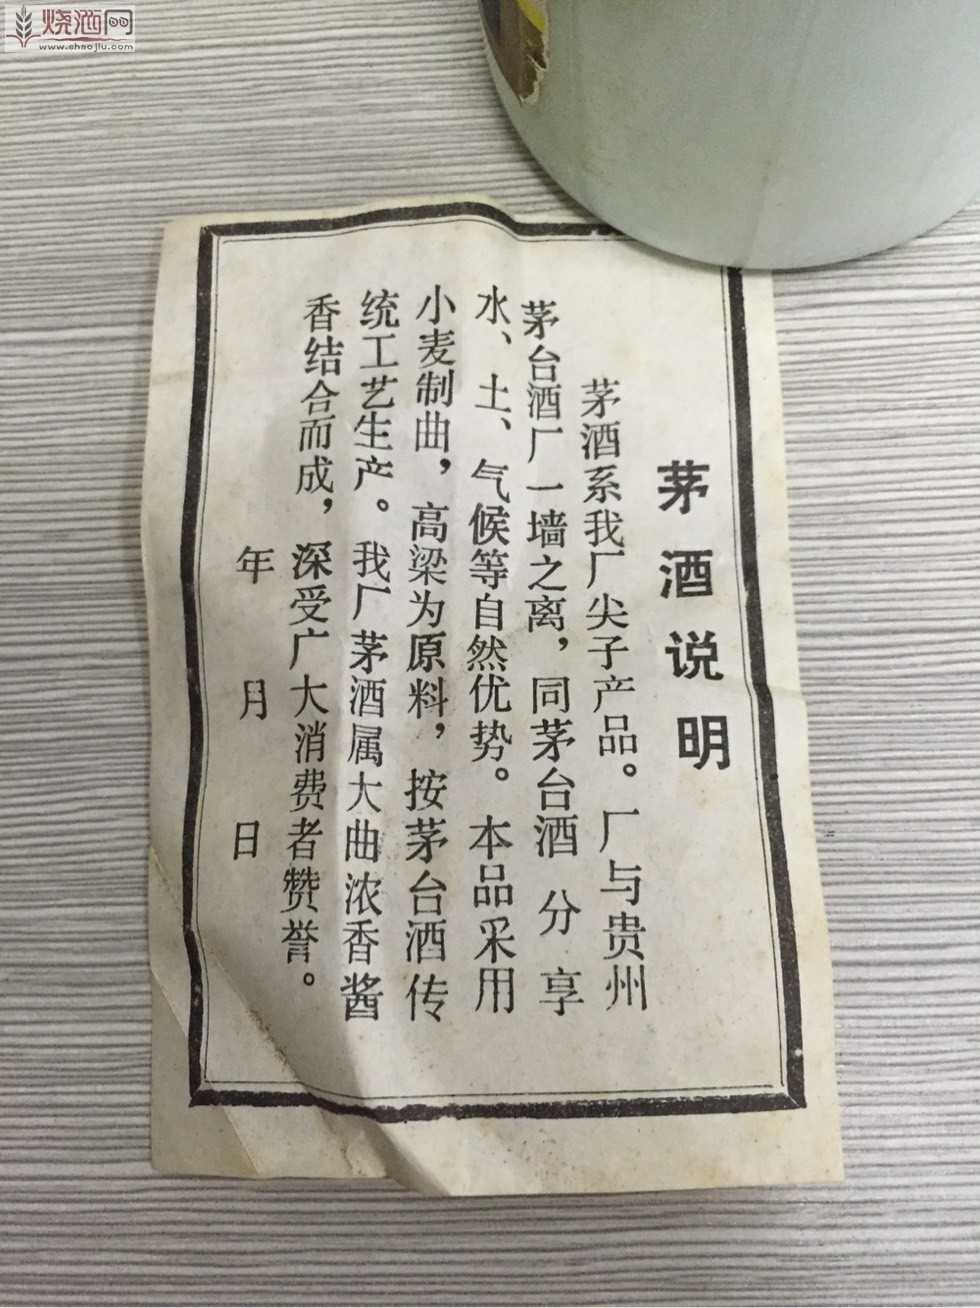 烧酒网
www.shaojiu.com
茅酒说明
茅酒系我厂尖子产品。厂与贵州
茅台酒厂一墙之离，同茅台酒分享
水、土、气候等自然优势。本品采用
小麦制曲，高梁为原料，按茅台酒传
统工艺生产。我厂茅酒属大曲浓香酱
香结合而成，深受广大消费者赞誉。
年 月 日